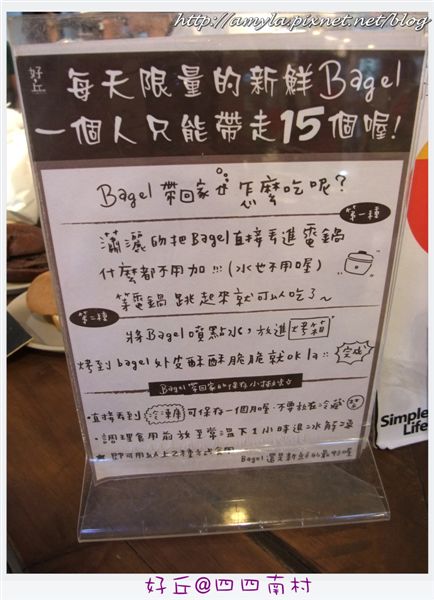 http://amyla.pixnet.net/blog
好丘
每天限量的新鮮Bagel
一個人只能帶走15個喔!
Bagel 帶回家 怎麼吃呢?
第一種
瀟灑的把Bagel直接丟進電鍋
什麼都不用加!!! (水也不用喔)
等電鍋 跳起來就可以吃了~
第二種
將Bagel噴點水,放進 烤箱
烤到bagel外皮酥酥脆脆就ok la
完成
Bagel 帶回家的保存小秘訣☆
•直接丟到 冷凍庫 可保存一個月喔,不要放在冷藏
•調理食用前放至常溫下1小時
即可用以上2種方式食用
Bagel 還是新鮮的最好喔
Simple
Life
好丘@四四南村